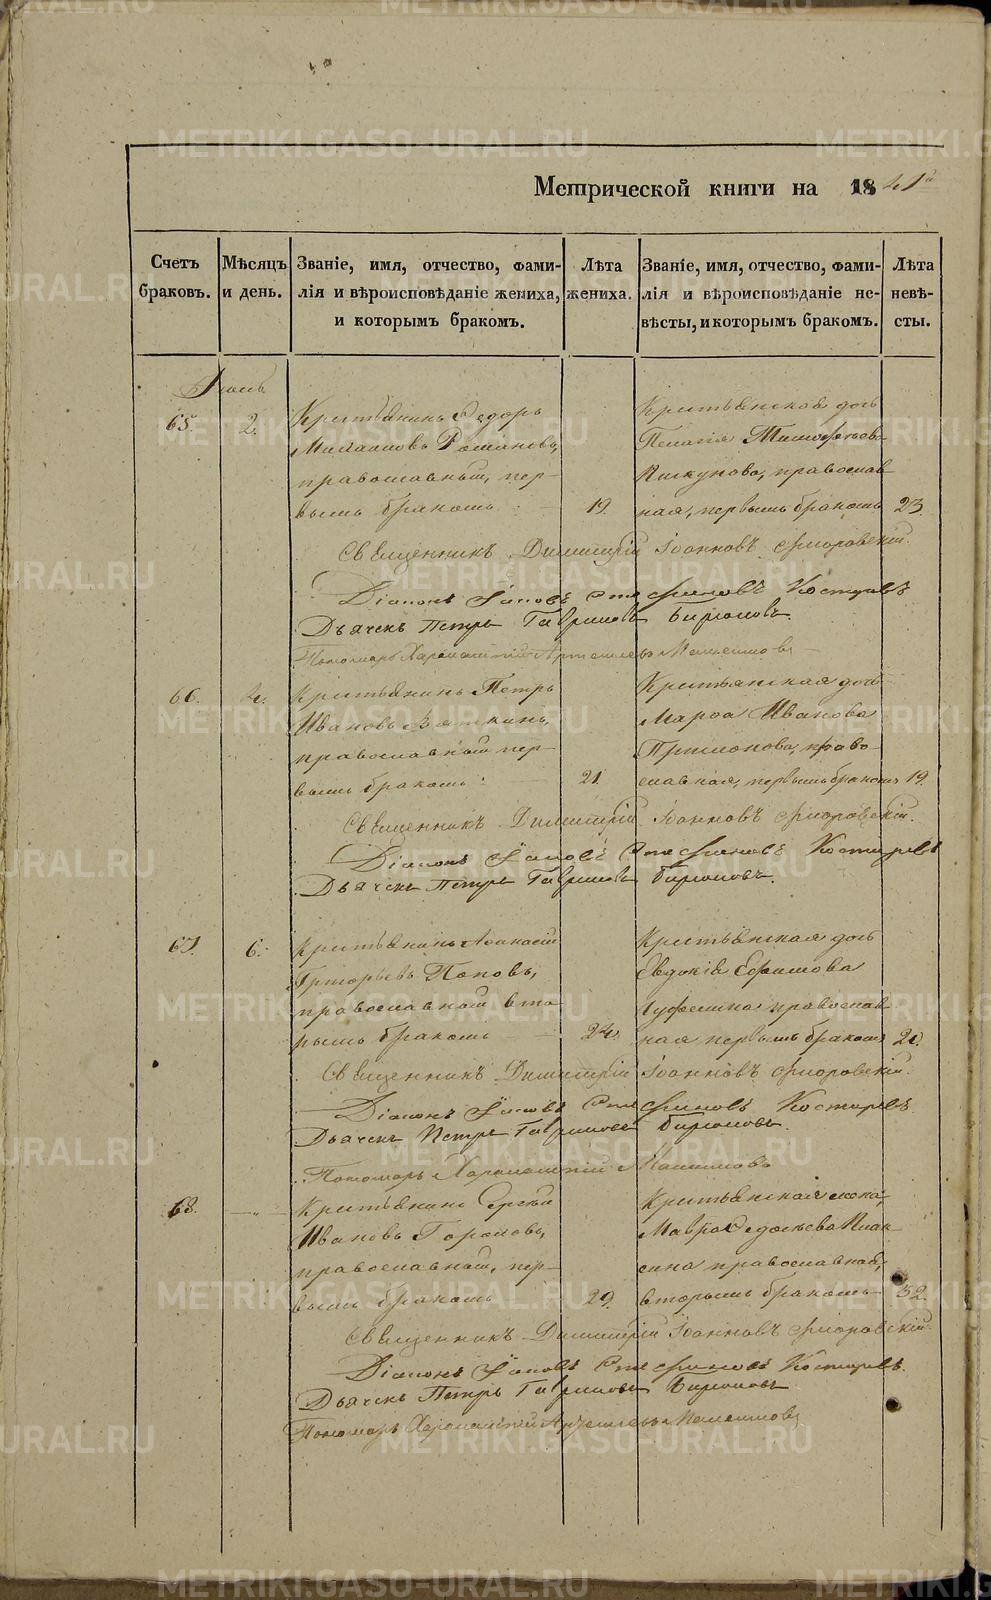 Метрической книги на 1841й
Счетъ браковъ.
Мѣсяцъ и день.
Званіе, имя, отчество, фами-
лія и вѣроисповѣданіе жениха,
и которымъ бракомъ.
Лѣта жениха.
Званіе, имя, отчество, фами-
лія и вѣроисповѣданіе не-
вѣсты, и которымъ бракомъ.
Лѣта невѣ-
сты.
65. 2.
Крестьянинъ Федоръ
Романовъ,
православный, пер-
вымъ бракомъ 19.
Крестьянская дочь
Пелагія Тимофеева
Пискунова, православ
ная, первымъ бракомъ 23.
Священникъ Димитрій Іоанновъ Флоровскій.
Діаконъ Іаковъ Стефановъ Костаревъ
Дьячекъ Петръ Гавриловъ Бирюковъ.
Пономарь Харалампій
66. 4.
Крестьянинъ Петръ
Ивановъ Вяткинъ,
православный пер-
вымъ бракомъ 21.
Крестьянская дочь
Марѳа Иванова
право-
славная, первымъ бракомъ 19.
Священникъ Димитрій Іоанновъ Флоровскій.
Діаконъ Іаковъ Стефановъ Костаревъ
Дьячекъ Петръ Гавриловъ Бирюковъ.
67. 6.
Крестьянинъ Аѳанасій
Григорьевъ Поповъ,
православный вто-
рымъ бракомъ 24.
Крестьянская дочь
Евдокія Ефимова
православ
ная первымъ бракомъ
Священникъ Димитрій Іоанновъ Флоровскій.
Діаконъ Іаковъ Стефановъ Костаревъ.
Дьячекъ Петръ Гавриловъ Бирюковъ.
Пономарь Харалампій
68. —„—
Крестьянинъ Сергѣй
Ивановъ
православный, пер-
вымъ бракомъ 29.
Крестьянская жонка,
Мавра Федосѣева
православная,
вторымъ бракомъ 32.
Священникъ Димитрій Іоанновъ Флоровскій.
Діаконъ Іаковъ Стефановъ Костаревъ.
Дьячекъ Петръ Гавриловъ Бирюковъ
Пономарь Харалампій